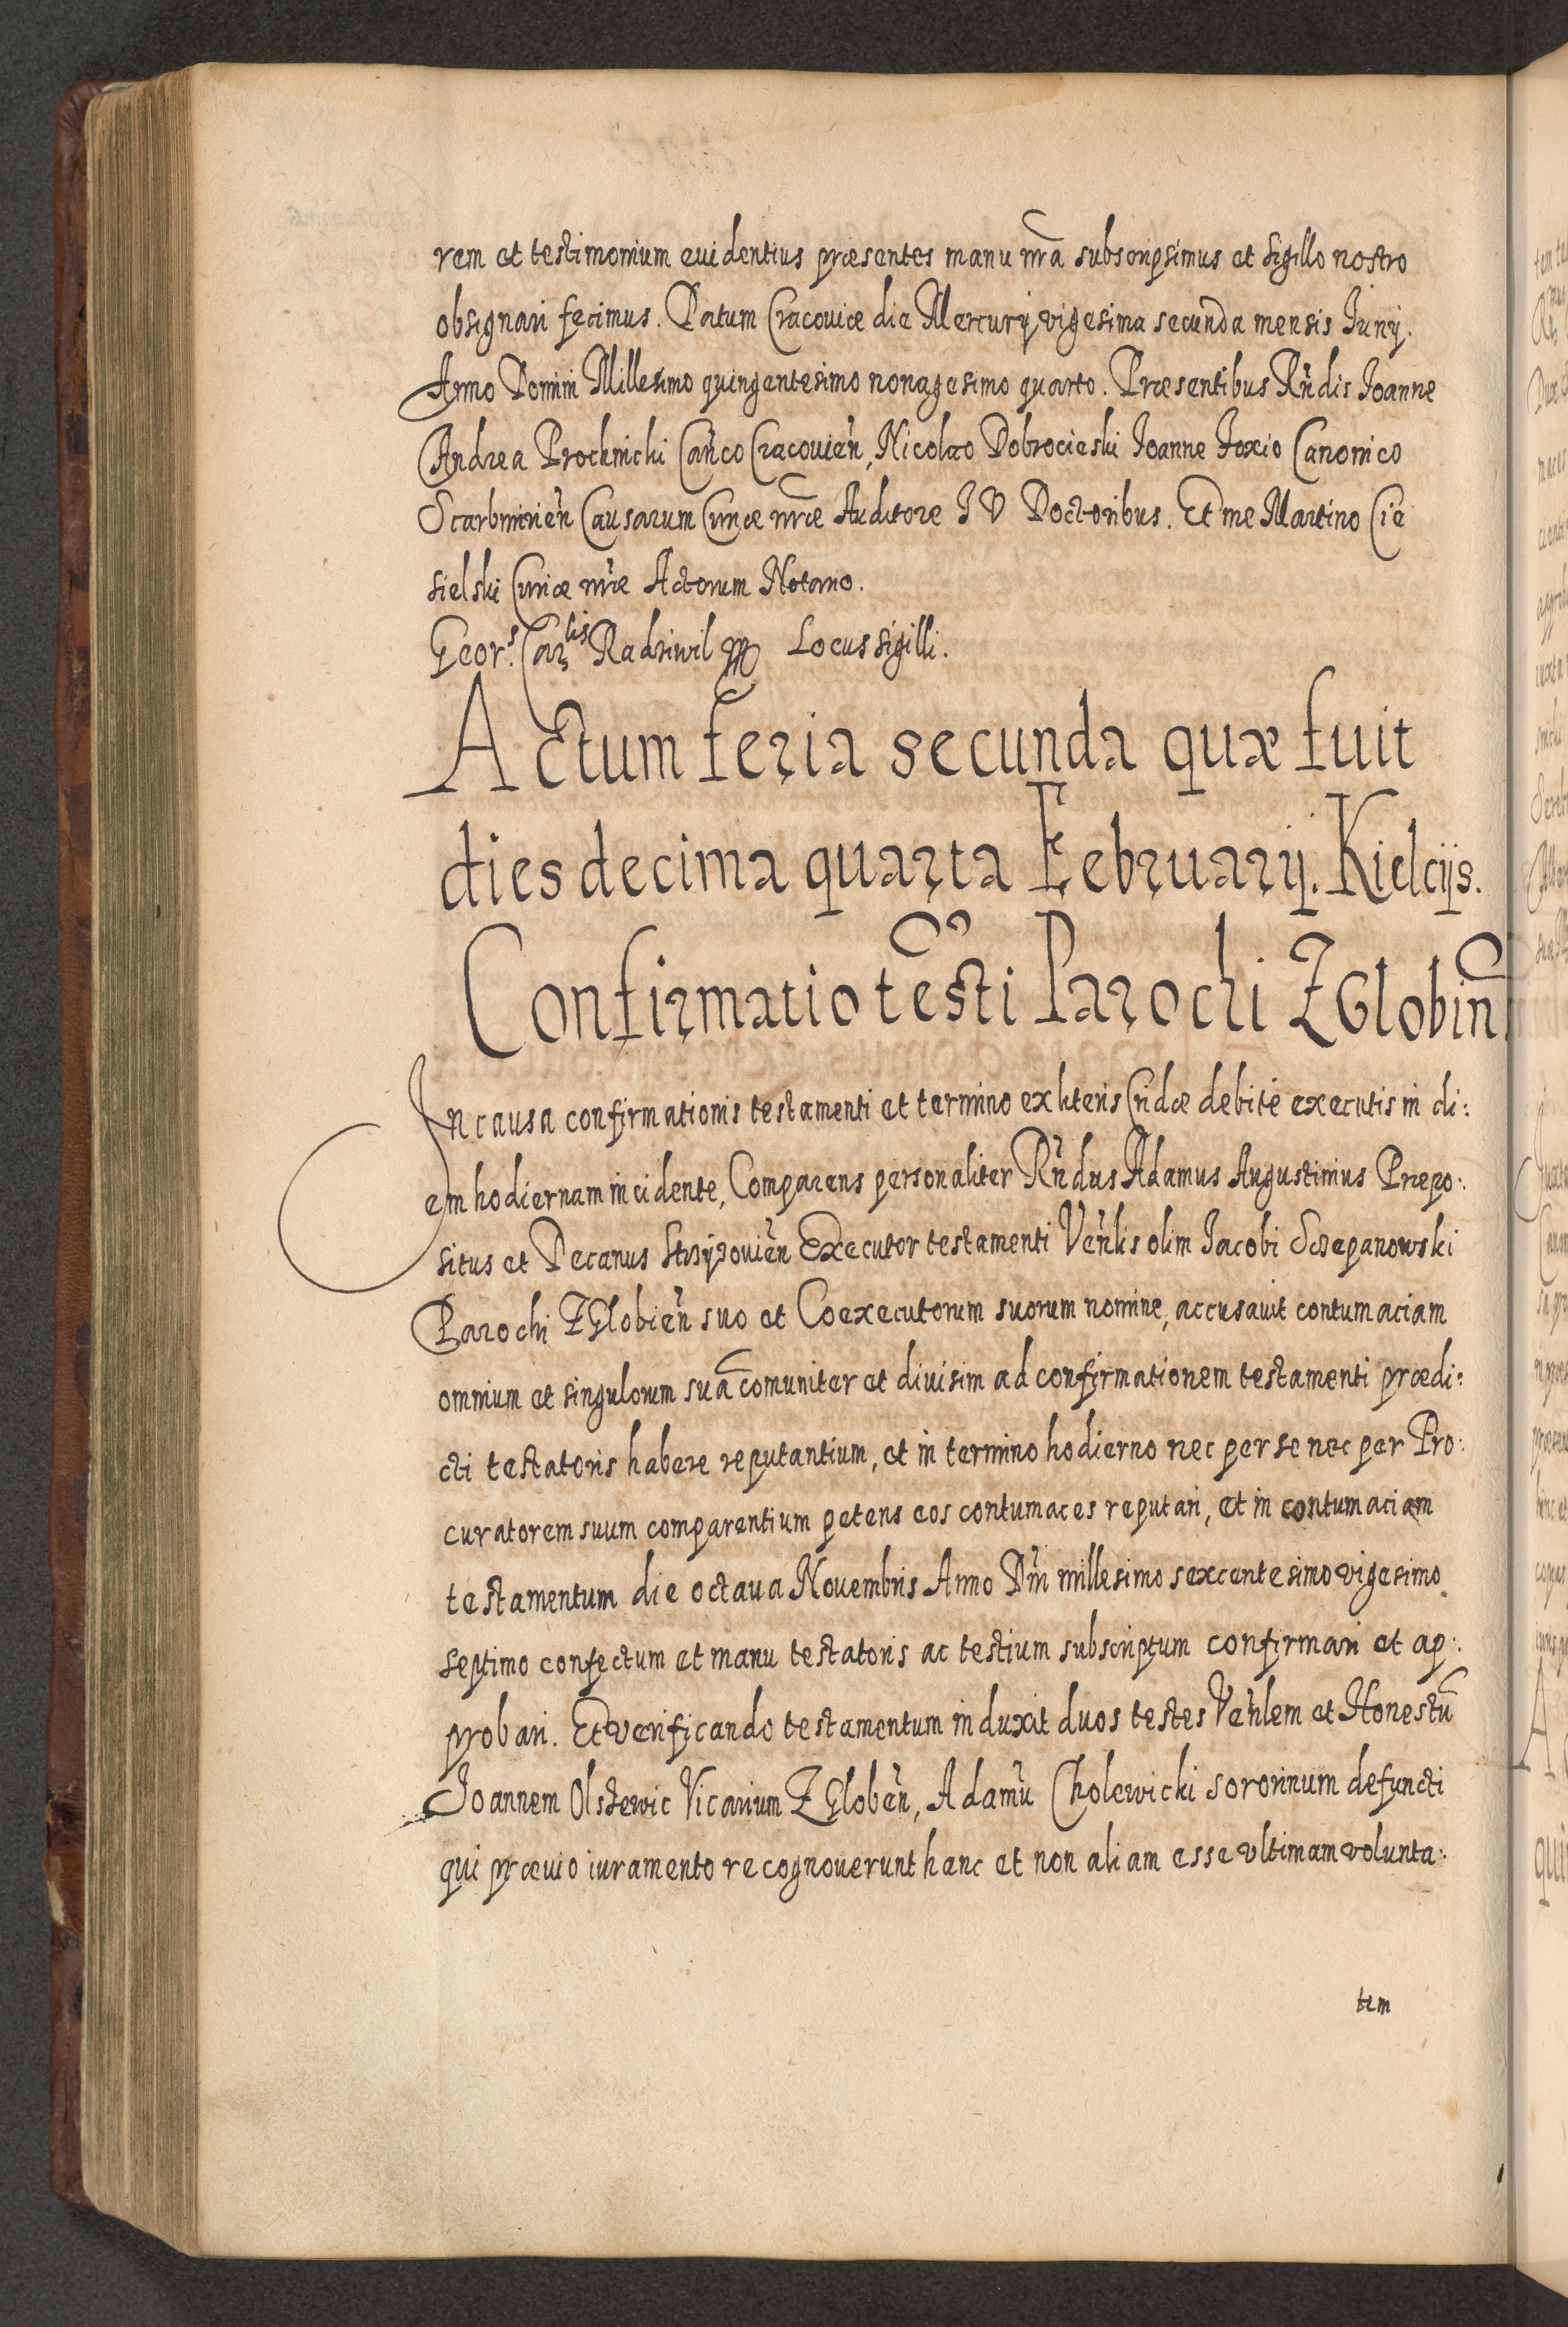 rem et testimonium euidentius præsentes manu nr̃a subscripsimus et sigillo nostro
obsignari fecimus. Datum Cracouiæ die Mercurij vigesima secunda mensis Iunij.
Anno Domini Millesimo quingentesimo nonagesimo quarto. Præsentibus Rñdis Ioanne
Andrea Prochnicki Cañco Cracouieñ, Nicolao Dobrocieski Ioanne Foxio Canonico
Scarbimirieñ Causarum Curiæ nr̃æ Auditore I V Doctoribus. Et me Martino Cie
sielski Curiæ nr̃æ Actorum Notario.
Geor.s Car.lis Radziwil Locus sigilli.
Actum feria secunda quæ fuit
dies decima quarta Februarij. Kielcijs.
Confirmatio testĩ Parochi ZGlobiñ
In causa confirmationis testamenti et termino ex literis Cridæ debitè executis in di:
em hodiernam incidente, Comparens personaliter Rñdus Adamus Augustinus Præpo:
situs et Decanus Strzyzouieñ Executor testamenti Veñlis olim Iacobi Sczepanowski
Parochi ZGlobieñ suo et Coexecutorum suorum nomine, accusauit contumaciam
omnium et singulorum suã comuniter et diuisim ad confirmationem testamenti prædi:
cti testatoris habere reputantium, et in termino hodierno nec per se nec per Pro:
curatorem suum comparentium petens eos contumaces reputari, et in contumaciam
testamentum die octaua Nouembris Anno Dñi millesimo sexcentesimo vigesimo
septimo confectum et manu testatoris ac testium subscriptum confirmari et ap:
probari. Et verificando testamentum induxit duos testes Veñlem et Honestũ
Ioannem Olstewic Vicarium ZGlobeñ, Adamũ Cholewicki sororinum defuncti
qui præuio iuramento recognouerunt hanc et non aliam esse vltimam volunta:
tem